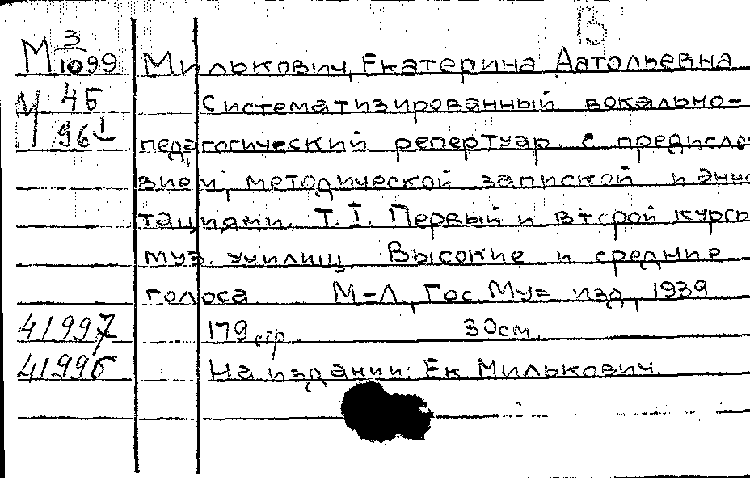 В
М 3/1099 Милькович, Екатерина Аатольевна
45 Систематизированный вокально-
961 педагогический репертуар с предисло
вием, методической запиской и анно
тациями. Т. I. Первый и второй курсы
муз. училищ Высокие и средние
голоса М-Л, Гос Муз изд, 1939
41997 179 стр. 30см.
41996 На издании: Ек Милькович.